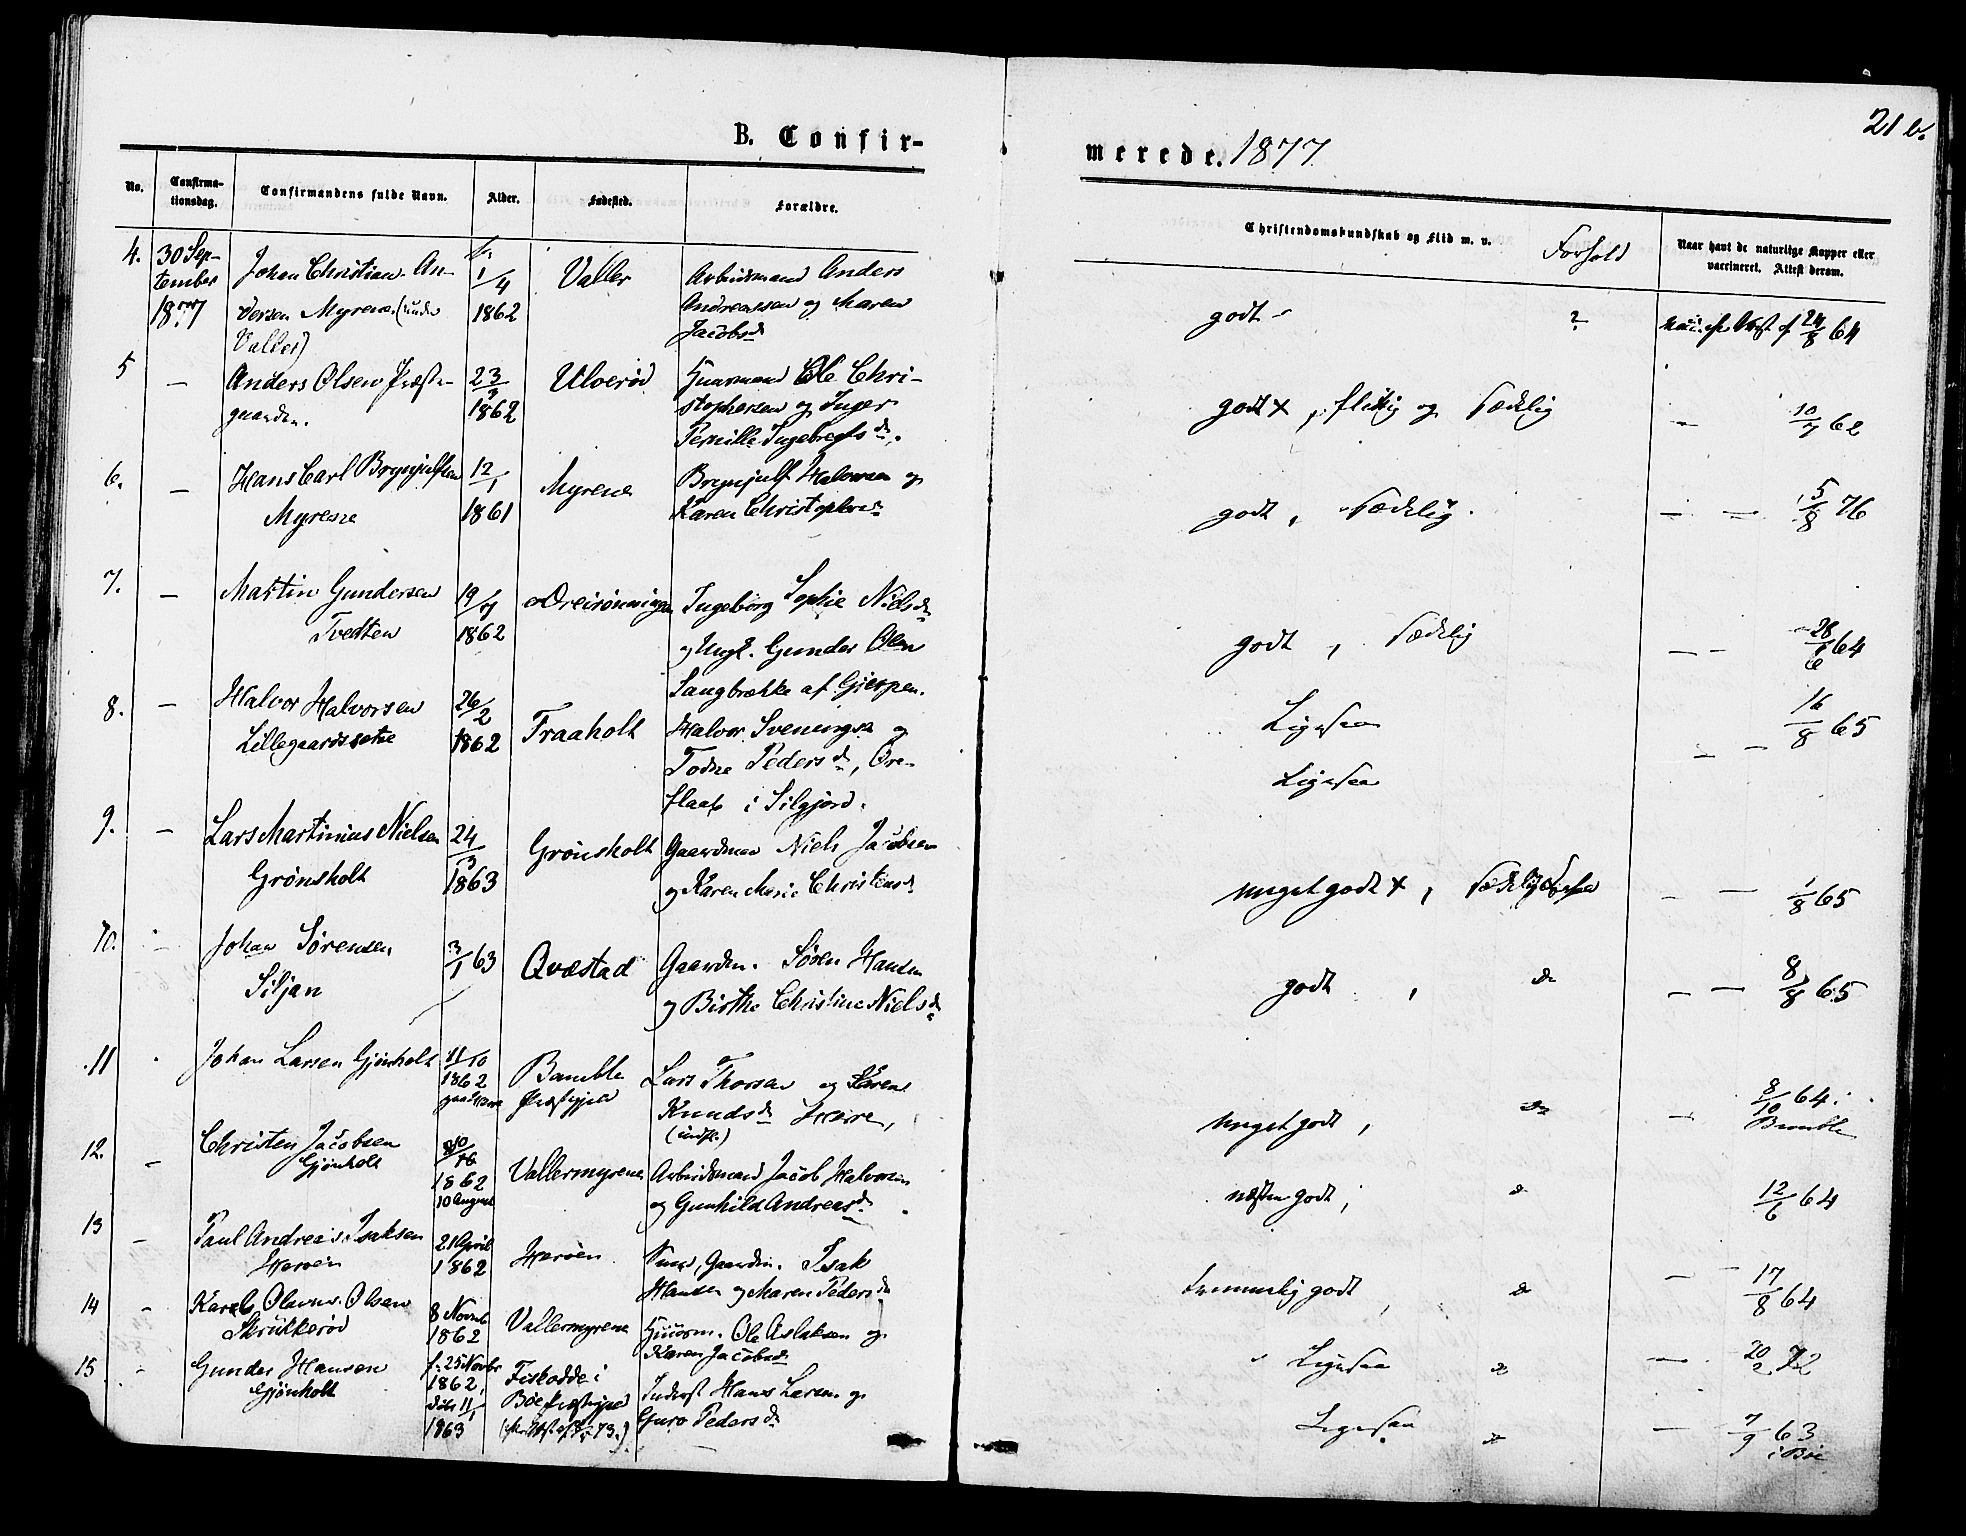 21 b.
B. Confir-
merede. 1877
No.
Confirma-
tionsdag.
Confirmandens fulde Navn.
Alder.
Fødested.
Forældre.
Christendomskundskab og Flid m. v.
Forhold
Naar havt de naturlige Kopper eller
vaccineret. Attest derom.
4.
30 Sep-
tember
1877
Johan Christian An-
dersen Myrene (under
Valler)
1/4
1862
Valler
Arbeidsmand Anders
Andreassen og Maren
Jacobsd
godt
?
24/8 64
5
—
Anders Olsen Præste-
gaarden.
23/3
1862
Ulverød
Huusmand Ole Chri-
stophersen og Inger
Pernille Ingebregtsd.
godt x, flittig og sædelig
—
10/7 62
6.
—
Hans Carl Brynjulfsen
Myrene
12/1
1861
Myrene
Brynjulf Halvorsen og
Karen Christophersd
godt, sædelig.
— —
5/8 76
7.
—
Martin Gundersen
Tvedten
19/7
1862
Ingeborg Sophie Nielsd
og Ungk. Gunder Olsen
Sangbrække af Gjerpen.
godt, sædelig
— —
28/6 64
8.
—
Halvor Halvorsen
Lillegaardssætre
26/2
1862
Traaholt
Halvor Sveningsen og
Todne Pedersd, Ore-
flaat i Silgjord.
Ligesaa
Ligesaa
— —
16/8 65
9.
—
Lars Martinius Nielsen
Grønsholt
24/3
1863
Grønsholt
Gaardman Niels Jacobsen
og Karen Marie Christensd
meget godt x, sædelig
— —
1/8 65
10.
—
Johan Sørensen
Siljan
3/1 63
Qvæstad
Gaardm. Søren Hansen
og Birthe Christine Nielsd
godt,
do
— —
8/8 65
11
Johan Larsen Gjønholt
11/10
1862
Bamble
Præstegjeld
Lars Thorsen og Karen
Knudsd Herre,
meget godt,
do
—
8/10 64 i
Bamble
12.
—
Christen Jacobsen
Gjønholt
1862
10 August
Vallermyrene
Arbeidsmand Jacob Halvorsen
og Gunhild Andreasd
næsten godt,
do
12/6 64
13
—
Paul Andreas Isaksen
Herøen
21 April
1862
Herøen
Gaardm. Isak
Hansen og Maren Pedersd
temmelig godt,
do
— —
17/8 64
14
—
Karel Olavus Olsen
Skrukkerød
8 Novmb
1862
Vallermyrene
Huusm. Ole Aslaksen og
Karen Jacobsd
Ligesaa
do
—
20/2 72
15
—
Gunder Hansen
Gjønholt
f. 25 Novbr
1862,
døbt 11/1
1863
Fiskodde i
Bøe Præstegjeld
Inderst Hans Larsen og
Guro Pedersd
Ligesaa
do
—
7/9 63
i Bøe